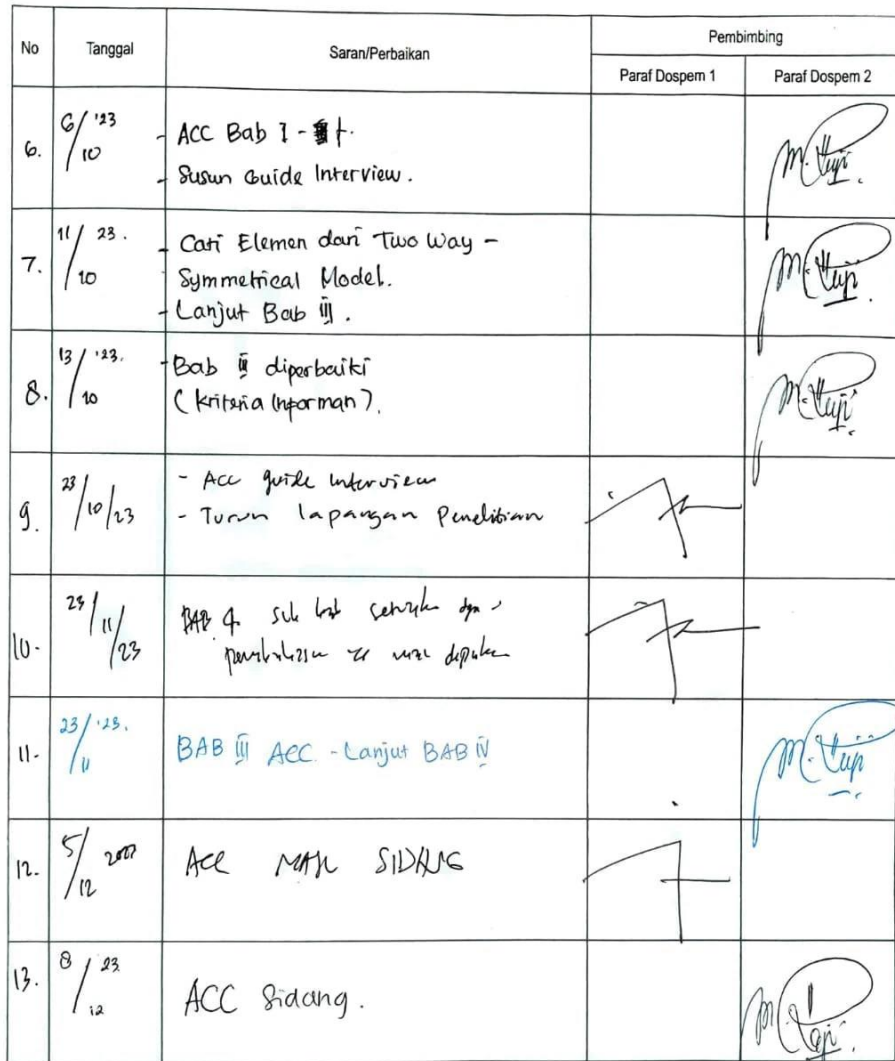 No Tanggal Saran/Perbaikan Pembimbing
Paraf Dospem 1 Paraf Dospem 2
6. 6/10 '23 - ACC Bab I -
- Susun Guide Interview.
M. Puji
7. 11/10 23. - Cari Elemen dari Two Way -
Symmetrical Model.
- Lanjut Bab III.
M. Puji
8. 13/10 '23. - Bab III diperbaiki
(Kriteria Informan).
M. Puji
9. 23/10/23 - Acc guide interview
- Turun lapangan Penelitian
10. 23/11/23 BAB 4 sub bab
11. 23/11 '23. BAB III ACC - Lanjut BAB IV
M. Puji
12. 5/12 ACC SIDANG
13. 8/12 23 ACC Sidang.
M. Puji